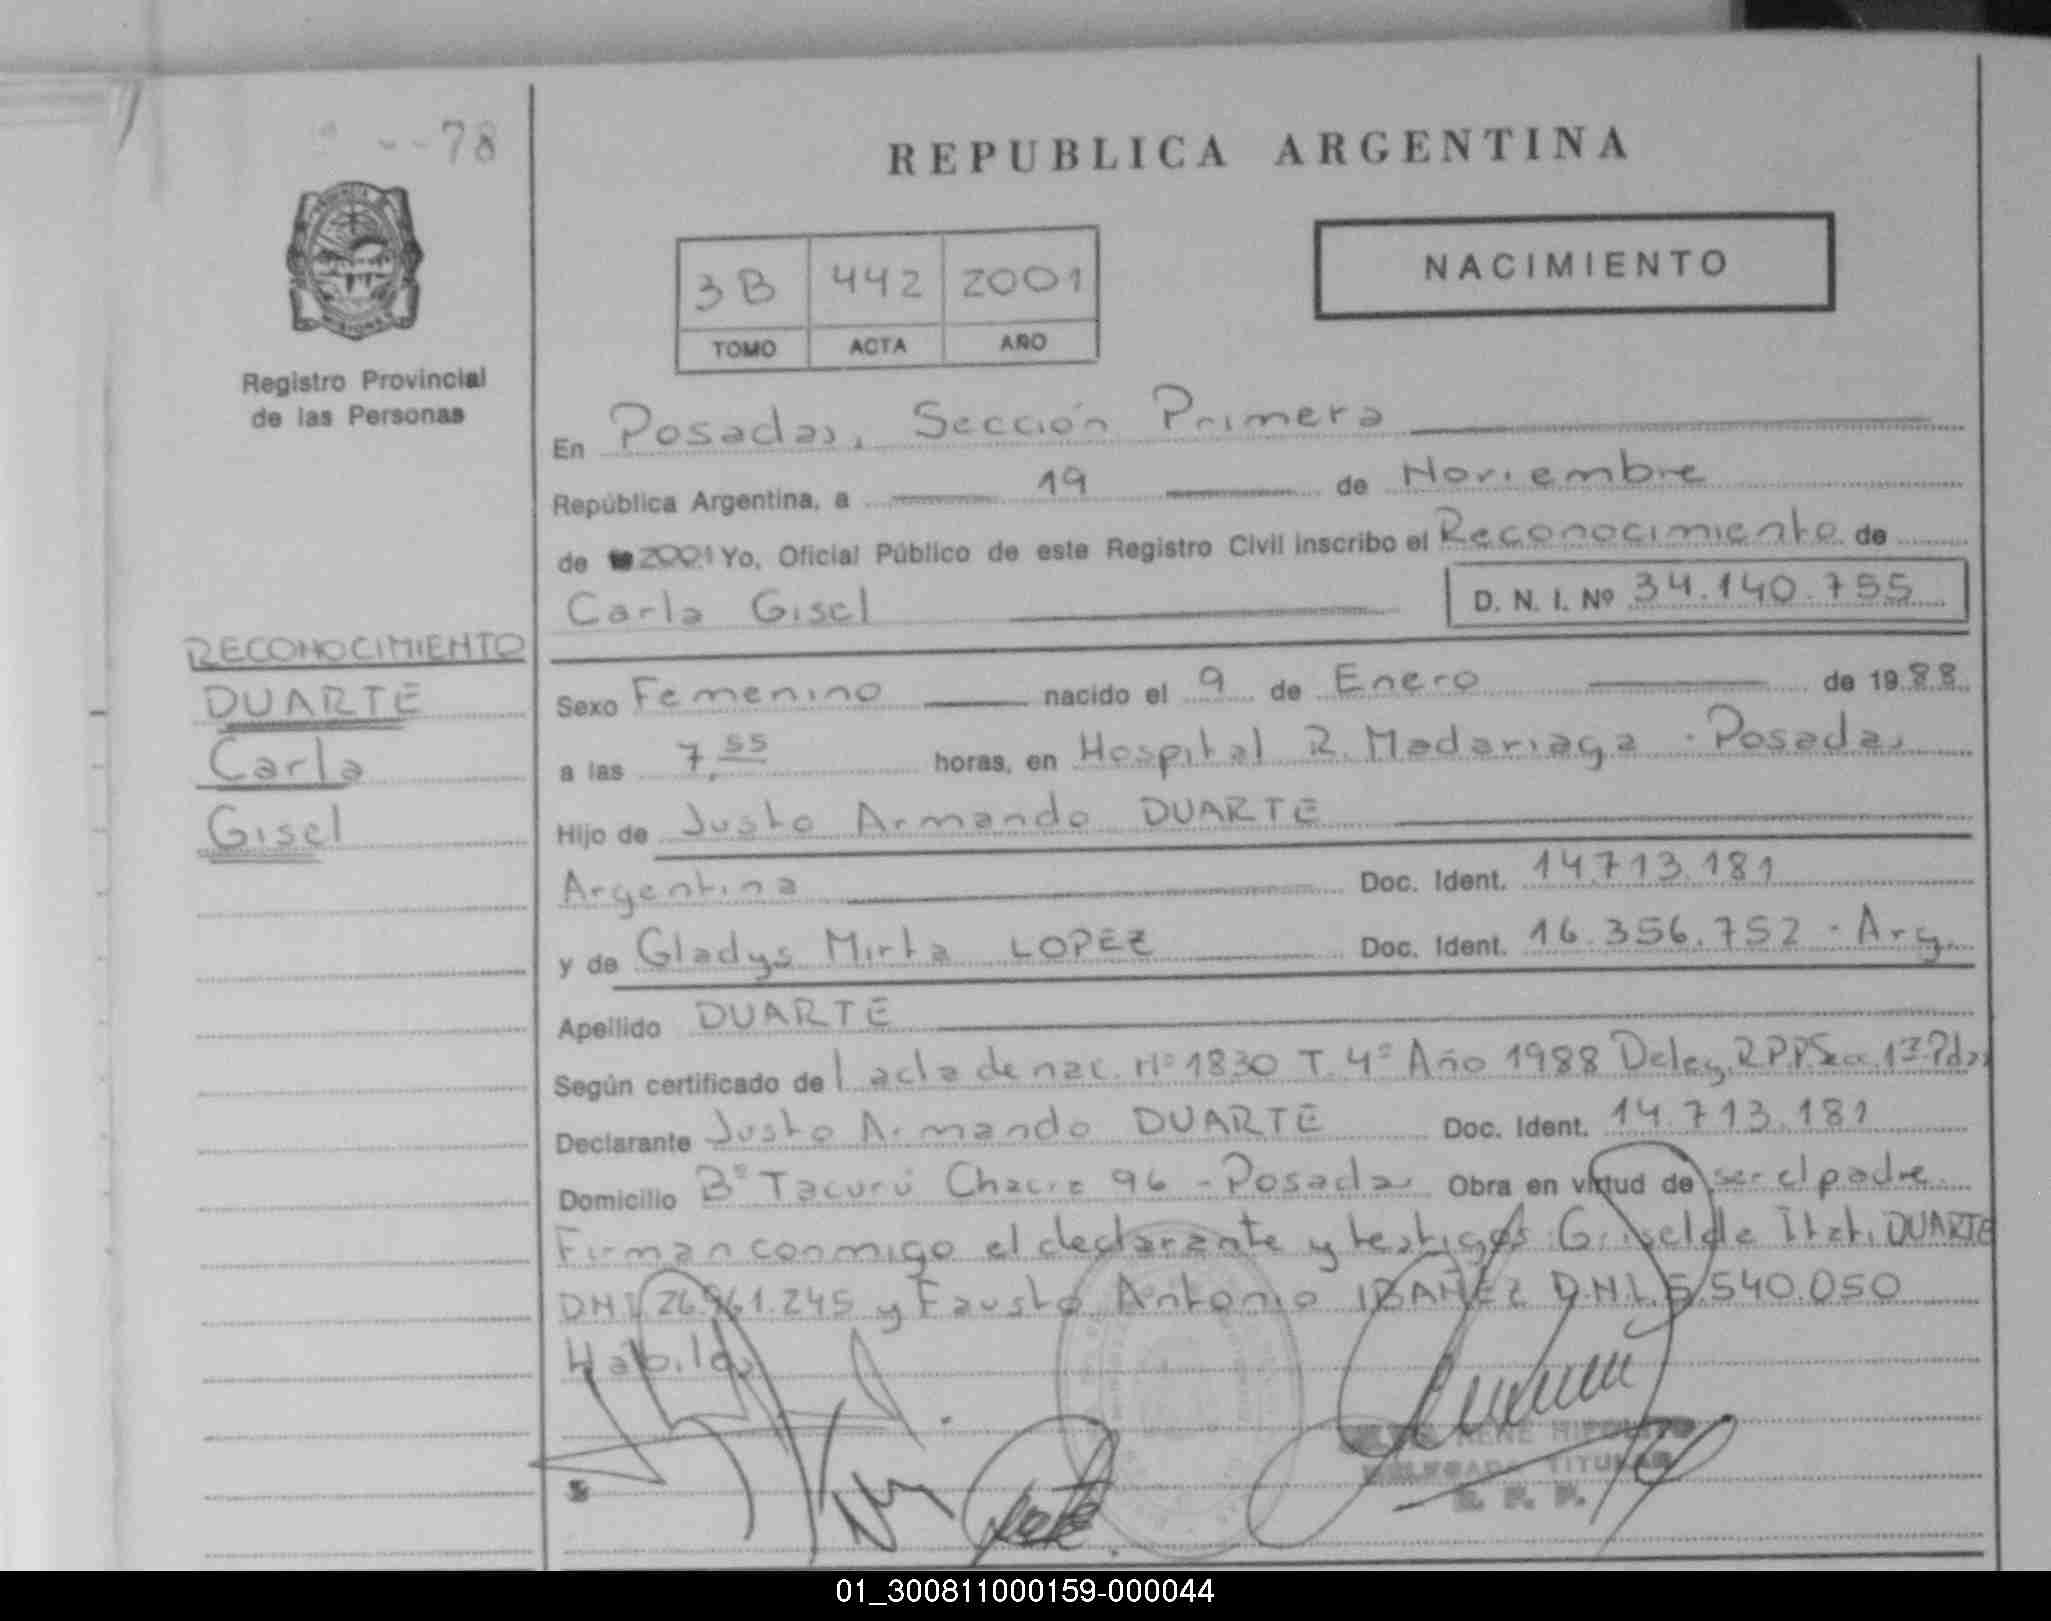 78
REPUBLICA ARGENTINA
3B 442 2001
TOMO ACTA AÑO
NACIMIENTO
Registro Provincial
de las Personas
En Posadas, Sección Primera
República Argentina, a 19 de Noviembre
de 2001 Yo, Oficial Público de este Registro Civil inscribo el Reconocimiento de
Carla Gisel D. N. I. Nº 34.140.755
RECONOCIMIENTO
DUARTE
Carla
Gisel
Sexo Femenino nacido el 9 de Enero de 1988
a las 7,55 horas, en Hospital R. Madariaga - Posadas
Hijo de Justo Armando DUARTE
Argentina Doc. Ident. 14.713.181
y de Gladys Mirta LOPEZ Doc. Ident. 16.356.752 - Arg.
Apellido DUARTE
Según certificado del acta de nac. Nº 1830 T. 4º Año 1988 Deleg. R.P.P. Sec. 1ª Pdas
Declarante Justo Armando DUARTE Doc. Ident. 14.713.181
Domicilio Bº Tacurú Chacra 96 - Posadas Obra en virtud de ser el padre
Firman conmigo el declarante y testigos: Griselda Itatí DUARTE
DNI 26.961.245 y Fausto Antonio IBAÑEZ D.N.I. 540.050
Habild
RENE HIPOLITO
DELEGADA TITULAR
R. P. P.
01_300811000159-000044